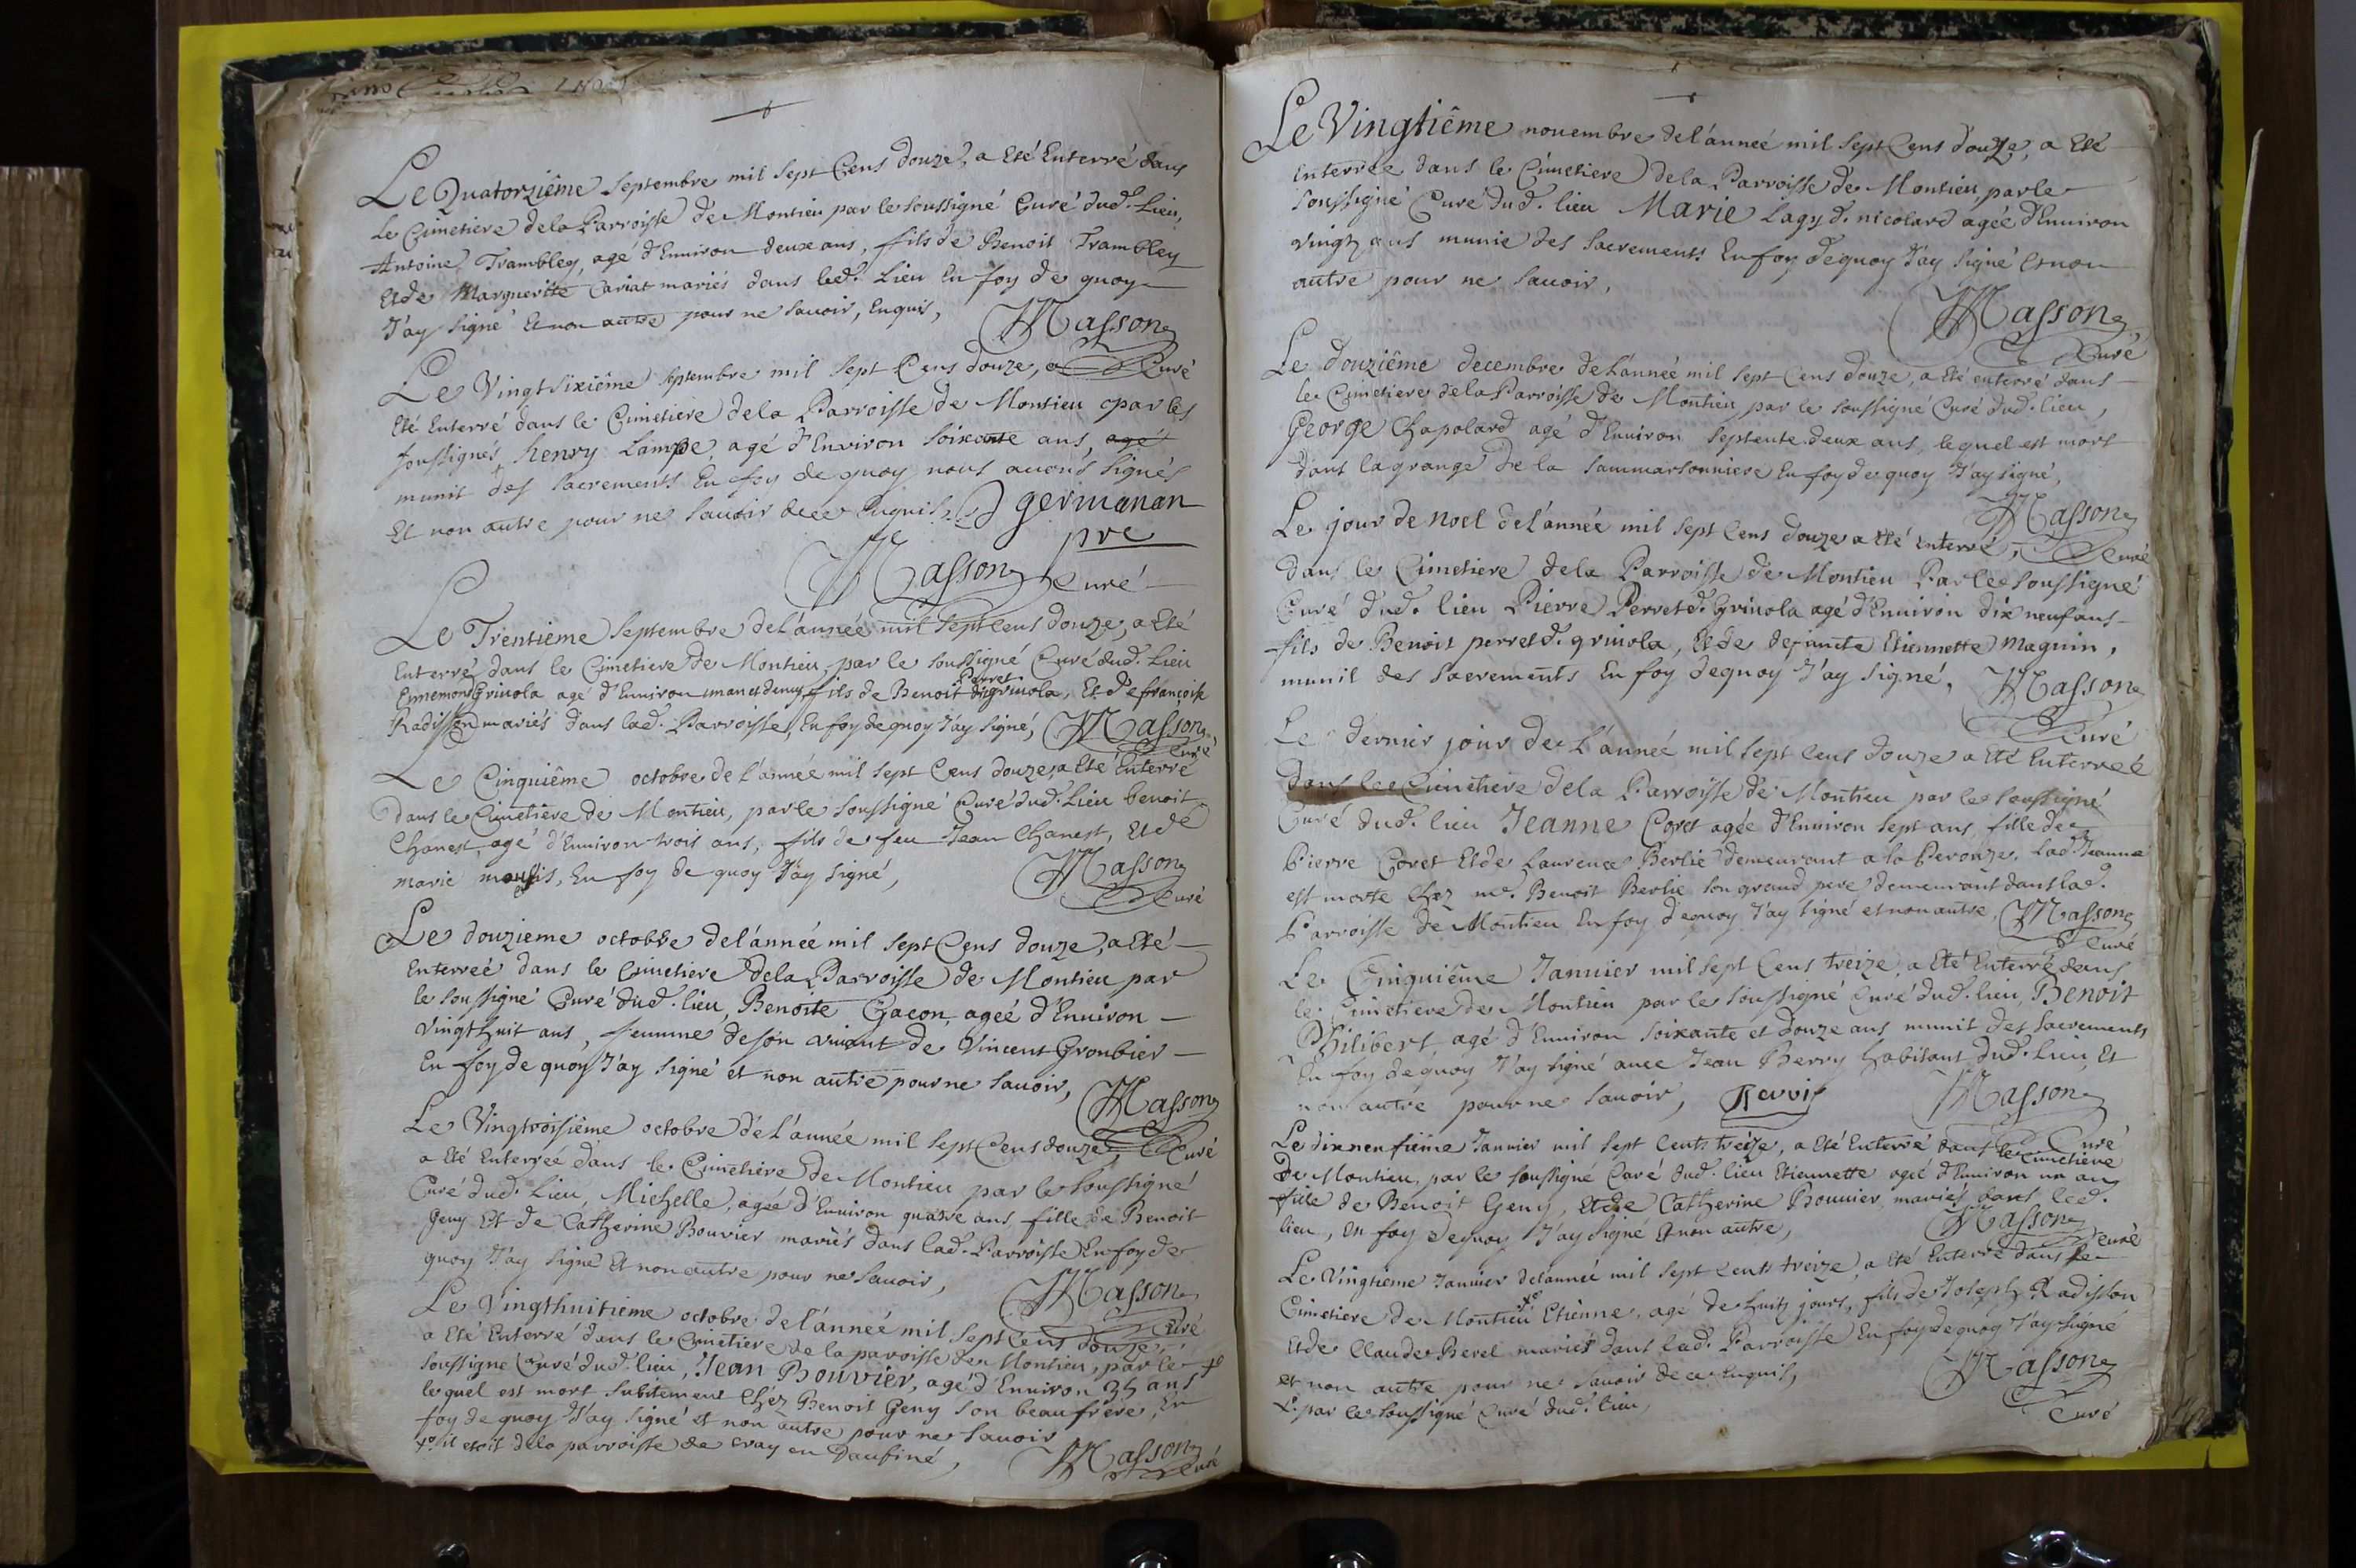 Le Quatorziême Septembre mil Sept Cens douze, a Eté Enterré dans
le Cimetiere dela Parroisse de Montieu par le soussigné Curé dud. Lieu,
Antoine Trambley, agé d'Enuiron deux ans, fils de Benoit Trambley
Et de Margueritte Cariat mariés dans led. Lieu En foy de quoy
J'ay signé Et non autre pour ne sauoir, Enquis,
Masson
Curé
Le Vingtsixiême septembre mil sept Cens douze, a
Eté Enterré dans le Cimetiere dela Parroisse de Montieu par les
soussignés, henry Lampe, agé d'Environ soixante ans, agé
munit des sacrements En foy de quoy nous auons signés
Et non autre pour ne sauoir de ce Enquis
germanan
pre
Masson Curé
Le Trentiême Septembre de l'année mil sept Cens douze, a Eté
Enterré dans le Cimetiere de Montieu par le soussigné Curé dud. Lieu
Perret
Ennemond Griuola agé d'Enuiron un an et demy fils de Benoit d. griuola, Et de françoise
Radisson mariés dans lad. Parroisse, En foy de quoy J'ay signé, Masson
Curé
Le Cinquiême octobre de l'année mil sept Cens douze, a Eté Enterré
dans le Cimetiere de Montieu, par le soussigné Curé dud. Lieu benoit
Chanest, agé d'Enuiron trois ans, fils de feu Jean Chanest, Et de
marie, En foy de quoy J'ay signé,
Masson
Curé
Le douzieme octobre de l'année mil sept Cens douze, a Eté
Enterreé dans le Cimetiere dela Parroisse de Montieu par
le soussigné Curé dud. lieu, Benoite Chacon, ageé d'Enuiron
vingt huit ans, femme de son viuant de Vincent Gronbier
En foy de quoy J'ay signé et non autre pour ne sauoir,
Masson
Curé
Le Vingtroisiême octobre de l'année mil sept Cens douze,
a Eté Enterreé dans le Cimetiere de Montieu par le soussigné
Curé dud. Lieu, Michelle, ageé d'Enuiron quatre ans fille de Benoit
Geny Et de Catherine Bouvier mariés dans lad. Parroisse En foy de
quoy J'ay signé Et non autre pour ne sauoir,
Masson
Curé
Le Vingthuitiême octobre de l'année mil sept Cens douze,
a Eté Enterré dans le Cimetiere de la paroisse de Montieu, par le
soussigné Curé dud. lieu, Jean Bouvier, agé d'Enuiron 35 ans
lequel est mort subitement chéz Benoit Geny son beaufrere, En
foy de quoy J'ay signé et non autre pour ne sauoir
il etoit dela parroisse de cray en Daufiné,
Masson
Curé
Le Vingtiême nouembre de l'anneé mil sept Cens douze, a Eté
Enterrée dans le Cimetiere dela Parroisse de Montieu, par le
soussigné Curé dud. lieu Marie Lagy d. nicolard ageé d'Enuiron
vingt ans munie des sacrements En foy de quoy J'ay signé et non
autre pour ne sauoir,
Masson
Curé
Le douziême decembre de l'année mil sept Cens douze, a Eté enterré dans
le Cimetiere dela Parroisse de Montieu, par le soussigné Curé dud. lieu,
George Chapolard agé d'Enuiron septente deux ans, lequel est mort
dans la grange de la sammarsonniere En foy de quoy J'ay signé,
Masson
Curé
Le jour de noel de l'année mil sept Cens douze a Eté enterré,
dans le Cimetiere dela Parroisse de Montieu Par le soussigné
Curé dud. lieu Pierre Perret d. Griuola agé d'Enuiron dix neuf ans
fils de Benoit perret d. griuola, Et de defuncte Etiennette Magnin,
munit des sacrements En foy de quoy J'ay signé,
Masson
Curé
Le dernier jour de L'anneé mil sept Cens douze a Eté Enterreé
dans le Cimetiere dela Parroisse de Montieu par le soussigné
Curé dud. lieu Jeanne Coret agée d'Enuiron sept ans, fille de
Pierre Coret Et de Laurence Berlie demeurant a la Perouze, lad. Jeanne
est morte chez me. Benoit Berlie son grand pere demeurant dans lad.
Parroisse de Montieu En foy de quoy J'ay signé et non autre,
Masson
Curé
Le Cinquiême Januier mil sept Cens treize a Eté Enterré dans
le Cimetiere de Montieu par le soussigné Curé dud. lieu, Benoit
Philibert agé d'Enuiron soixante et douze ans munit des sacrements
En foy de quoy J'ay signé auec Jean Berry habitant dud. lieu, Et
non autre pour ne sauoir,
Masson
Curé
Le dixneufiême Januier mil sept Cents treize, a Eté Enterré dans le Cimetiere
de Montieu par le soussigné Curé dud. lieu Etiennette ageé d'Enuiron un an
fille de Benoit Geny, Et de Catherine Bouuier mariés dans led.
lieu, En foy de quoy J'ay signé Et non autre,
Masson
Curé
Le Vingtieme Januier de l'anneé mil sept Cents treize, a Eté Enterré dans le
Cimetiere de Montieu Etienne, agé de huit jours, fils de Joseph Radisson
Et de Claude Berel mariés dans lad. Parroisse En foy de quoy J'ay signé
et non autre pour ne sauoir de ce Enquis,
par le soussigné Curé dud. lieu,
Masson
Curé